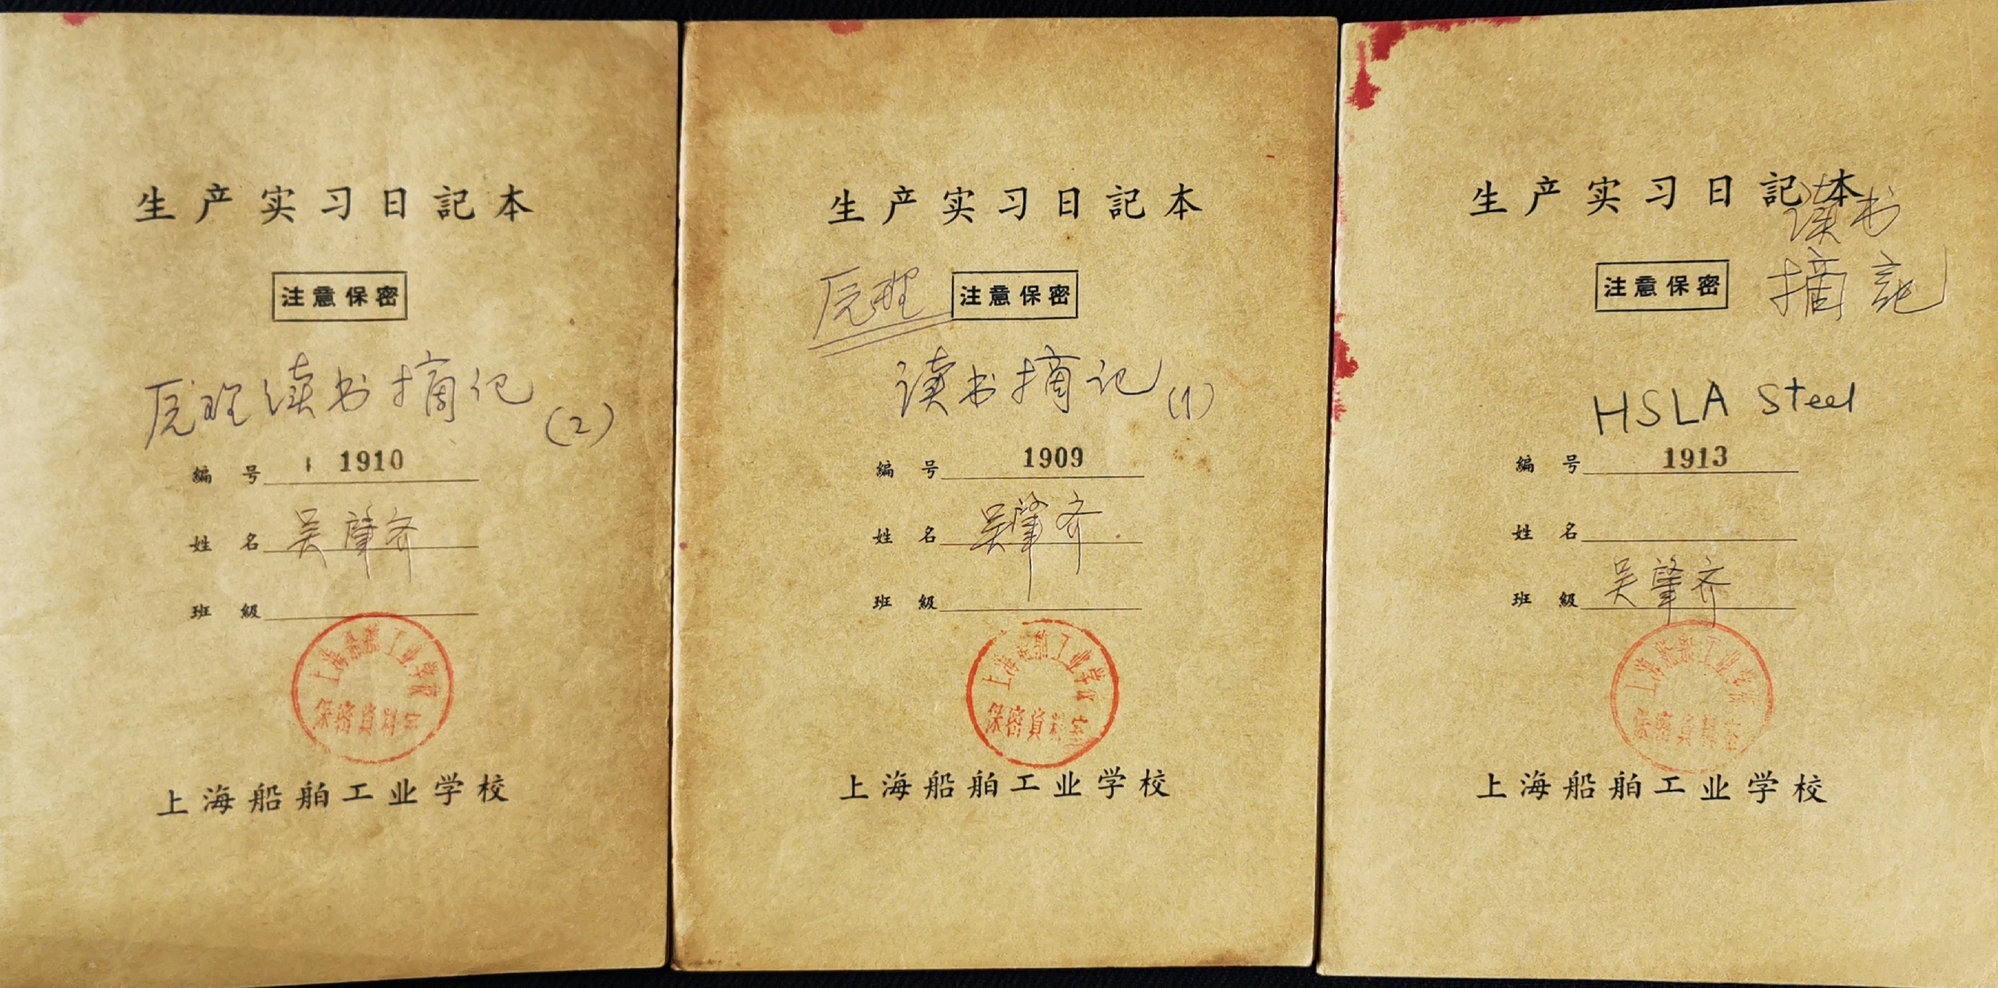 生产实习日記本
注意保密
原理读书摘记(2)
編号 1910
姓名 吴肇齐
班級
上海船舶工业学校
保密資料室
上海船舶工业学校
生产实习日記本
原理
注意保密
读书摘记(1)
編号 1909
姓名 吴肇齐
班級
上海船舶工业学校
保密資料室
上海船舶工业学校
生产实习日記本
读书
摘記
注意保密
HSLA Steel
編号 1913
姓名
班級 吴肇齐
上海船舶工业学校
保密資料室
上海船舶工业学校